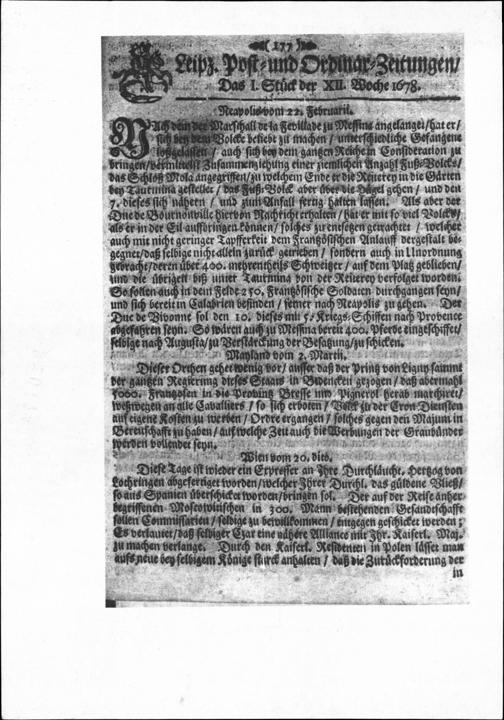 ( 177 )
Leipz. Post- und Ordinar-Zeitungen/
Das I. Stück der XII. Woche 1678.
Neapolis vom 22. Februarii.
NAch dem der Marschall de la Fevillade zu Messina angelanget/ hat er/
sich bey dem Volcke beliebt zu machen/ unterschiedliche Gefangene
loßgelassen/ auch sich bey dem gantzen Reiche in Consideration zu
bringen/ vermittelst Zusammenziehung einer ziemlichen Anzahl Fuß-Volcks/
das Schloß Mola angegriffen/ zu welchem Ende er die Reiterey in die Gärten
bey Taurmina gestellet/ das Fuß-Volck aber über die Hügel gehen/ und den
7. dieses sich nähern/ und zum Anfall fertig halten lassen. Als aber der
Duc de Bournonville hiervon Nachricht erhalten/ hat er mit so viel Volck/
als er in der Eil auffbringen können/ solches zu entsetzen getrachtet/ welcher
auch mit nicht geringer Tapfferkeit dem Frantzösischen Anlauff dergestalt be-
gegnet/ daß selbige nicht allein zurück getrieben/ sondern auch in Unordnung
gebracht/ deren über 400. mehrentheils Schweitzer/ auf dem Platz geblieben/
und die übrigen biß unter Taurmina von der Reiterey verfolget worden.
So sollen auch in dem Felde 250. Frantzösische Soldaten durchgangen seyn/
und sich bereit in Calabrien befinden/ ferner nach Neapolis zu gehen. Der
Duc de Vivonne sol den 10. dieses mit 5. Kriegs-Schiffen nach Provence
abgefahren seyn. So wären auch zu Messina bereit 400. Pferde eingeschiffet/
selbige nach Augusta/ zu Verstärckung der Besatzung/ zu schicken.
Mayland vom 2. Martii.
Dieser Orthen gehet wenig vor/ ausser daß der Printz von Ligny sammt
der gantzen Regierung dieses Staats in Bedencken gezogen/ daß abermahl
5000. Frantzosen in die Provintz Bresse und Pignerol herab marchiret/
weßwegen an alle Cavalliers/ so sich erboten/ Volck zu der Cron Diensten
auf eigene Kosten zu werben/ Ordre ergangen/ solches gegen den Majum in
Bereitschafft zu haben/ auf welche Zeit auch die Werbungen der Graubünder
werden vollendet seyn.
Wien vom 20. dito.
Diese Tage ist wieder ein Expresser an Ihre Durchläucht. Hertzog von
Lothringen abgefertiget worden/ welcher Ihrer Durchl. das güldene Vließ/
so aus Spanien überschicket worden/ bringen sol. Der auf der Reise anher
begriffenen Moscowitischen in 300. Mann bestehenden Gesandschafft
sollen Commissarien/ selbige zu bewillkommen/ entgegen geschicket werden;
Es verlautet/ daß selbiger Czar eine nähere Alliance mit Ihr. Kaiserl. Maj.
zu machen verlange. Durch den Kaiserl. Residenten in Polen lässet man
aufs neue bey selbigem Könige starck anhalten/ daß die Zurückforderung der
in